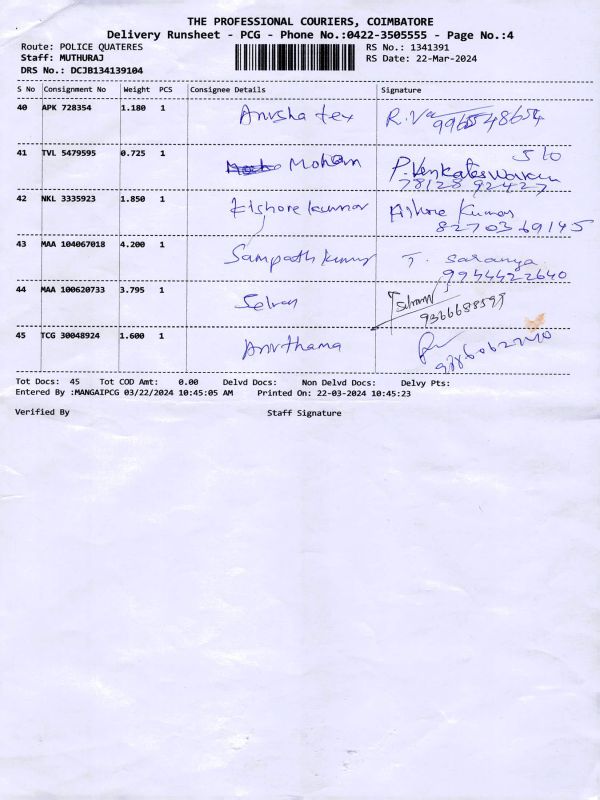 THE PROFESSIONAL COURIERS, COIMBATORE
Delivery Runsheet - PCG - Phone No.:0422-3505555 - Page No.:4
Route: POLICE QUATERES RS No.: 1341391
Staff: MUTHURAJ RS Date: 22-Mar-2024
DRS No.: DCJB134139104
S No Consignment No Weight PCS Consignee Details Signature
40 APK 728354 1.180 1 Anusha tex R.V
41 TVL 5479595 0.725 1 Mohan P.Venkateswaran S/o
78128 92427
42 NKL 3335923 1.850 1 Kishore kumar Kishore Kumar
8270369145
43 MAA 104067018 4.200 1 Sampath kumar T. Saranya
9944422640
44 MAA 100620733 3.795 1 Selvan
45 TCG 30048924 1.600 1
Tot Docs: 45 Tot COD Amt: 0.00 Delvd Docs: Non Delvd Docs: Delvy Pts:
Entered By :MANGAIPCG 03/22/2024 10:45:05 AM Printed On: 22-03-2024 10:45:23
Verified By Staff Signature